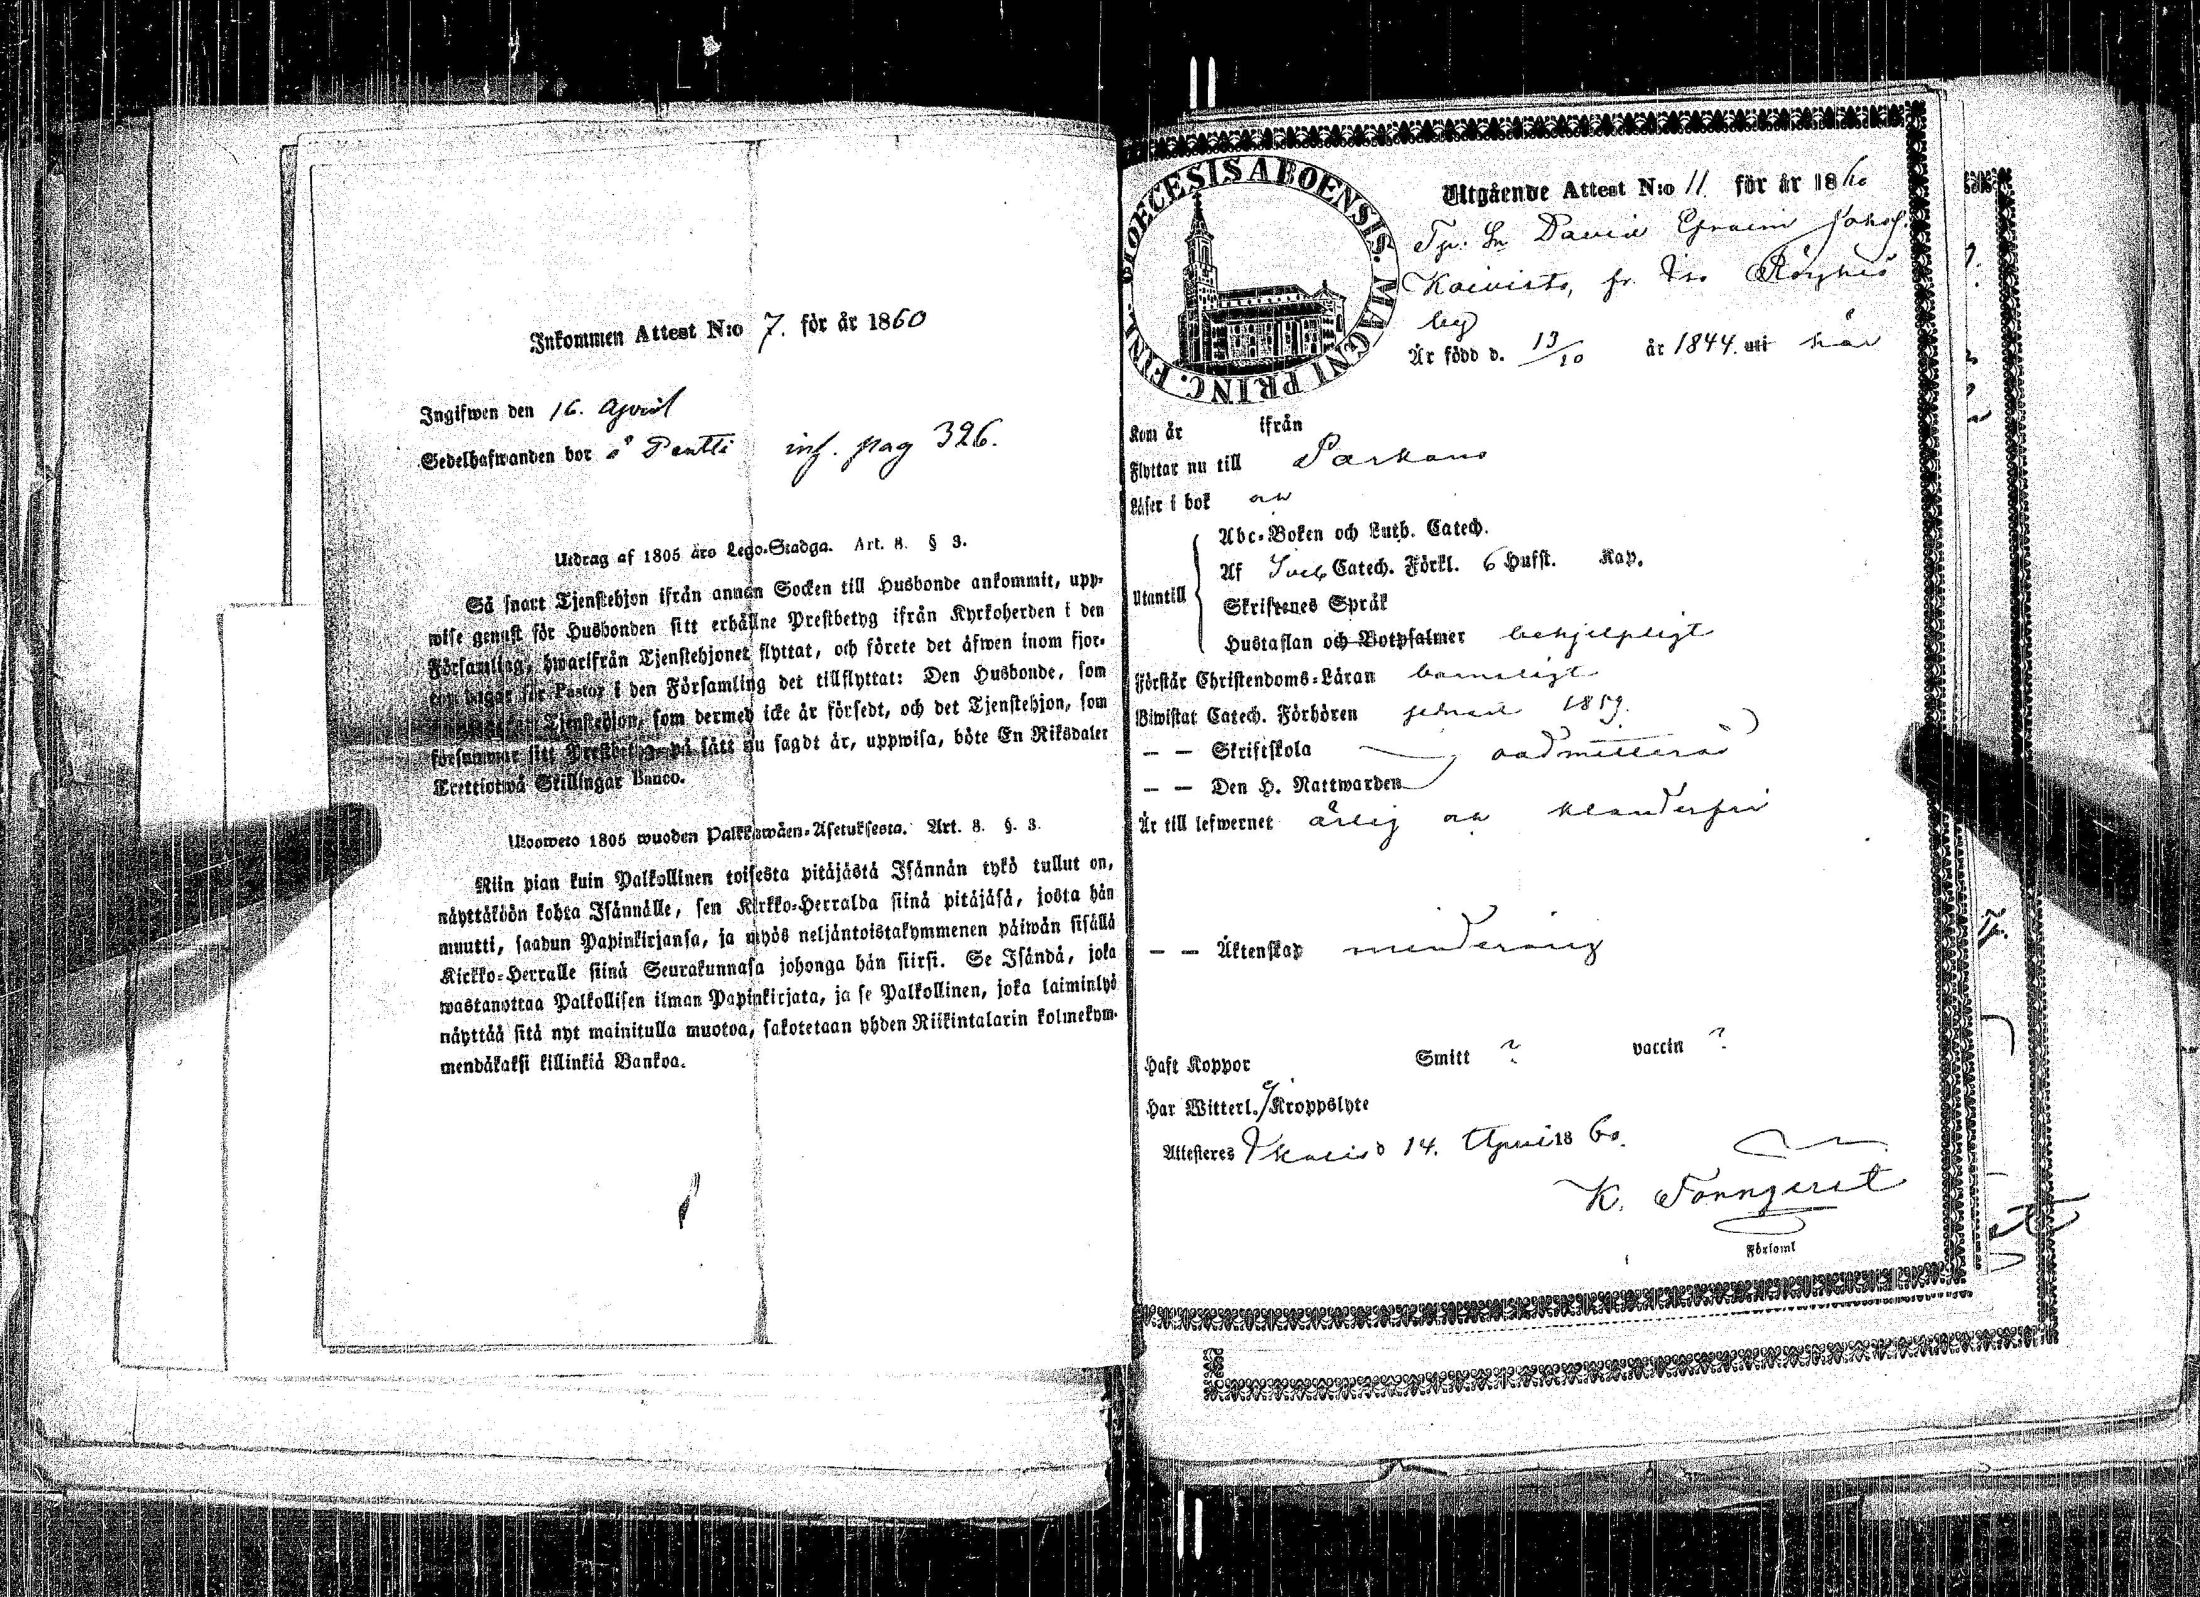 Inkommen Attest N:o 7. för år 1860
Ingifwen den 16. April
Sedelhafwanden bor å Pentti inf. pag 326.
Utdrag af 1805 års Lego-Stadga. Art. 8. § 3.
Så snart Tjenstehjon ifrån annan Socken till Husbonde ankommit, upp-
wise genast för Husbonden sitt erhållne Prestbetyg ifrån Kyrkoherden i den
Församling, hwarifrån Tjenstehjonet flyttat, och förete det äfwen inom fjor-
ton dagar för Pastor i den Församling det tillflyttat: Den Husbonde, som
Tjenstehjon, som dermed icke är försedt, och det Tjenstehjon, som
försummar sitt Prestbetyg, på sätt nu sagdt är, uppwisa, böte En Riksdaler
Trettiotwå Skillingar Banco.
Ulosweto 1805 wuoden Palkkawäen-Asetuksesta. Art. 8. §. 3.
Niin pian kuin Palkollinen toisesta pitäjästä Isännän tykö tullut on,
näyttäköön kohta Isännälle, sen Kirkko-Herralda siinä pitäjäsä, josta hän
muutti, saadun Papinkirjansa, ja myös neljäntoistakymmenen päiwän sisällä
Kirkko-Herralle siinä Seurakunnasa johonga hän siirsi. Se Isändä, joka
wastanottaa Palkollisen ilman Papinkirjata, ja se Palkollinen, joka laiminlyö
näyttää sitä nyt mainitulla muotoa, sakotetaan yhden Riikintalarin kolmekym-
mendäkaksi killinkiä Bankoa.
DIOECESIS ABOENSIS. MAGNI PRINC. FINL.
Utgående Attest N:o 11 för år 1860
Tp. Sn David Efraim Johsf.
Koivisto, fr. Röyhiö
by
Är född d. 13/10 år 1844. uti här
Kom år ifrån
Flyttar nu till Parkano
Läser i bok
Abc-Boken och Luth. Catech.
Utantill Af Sveb Catech. Förkl. 6 Hufst. Kap.
Skriftenes Språk
Hustaflan och Botpsalmer behjelpligt
Förstår Christendoms-Läran barnsligt
Biwistat Catech. Förhören 1859.
— — Skriftskola admitteras
— — Den H. Nattwarden
Är till lefwernet ärlig och klanderfri
— — Äktenskap minderårig
Haft Koppor Smitt ? vaccin ?
Har Witterl. ej Kroppslyte
Attesteres Ikalis d 14. April 1860.
K. Tonngren
Församl